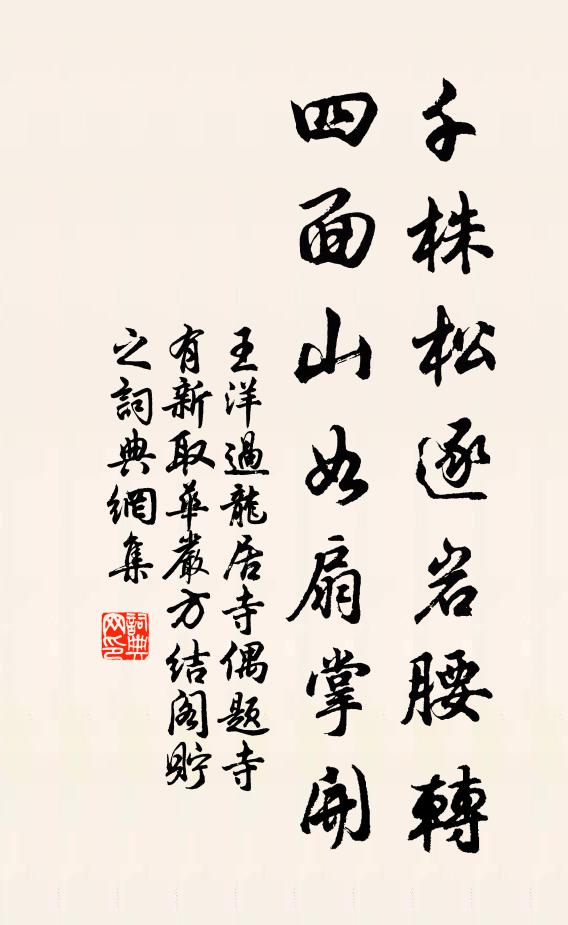 千株松逐岩腰轉
四面山如扇掌開
王洋過龍居寺偶題寺
有新取華嚴方結閣貯
之詞典網集
詞典网印